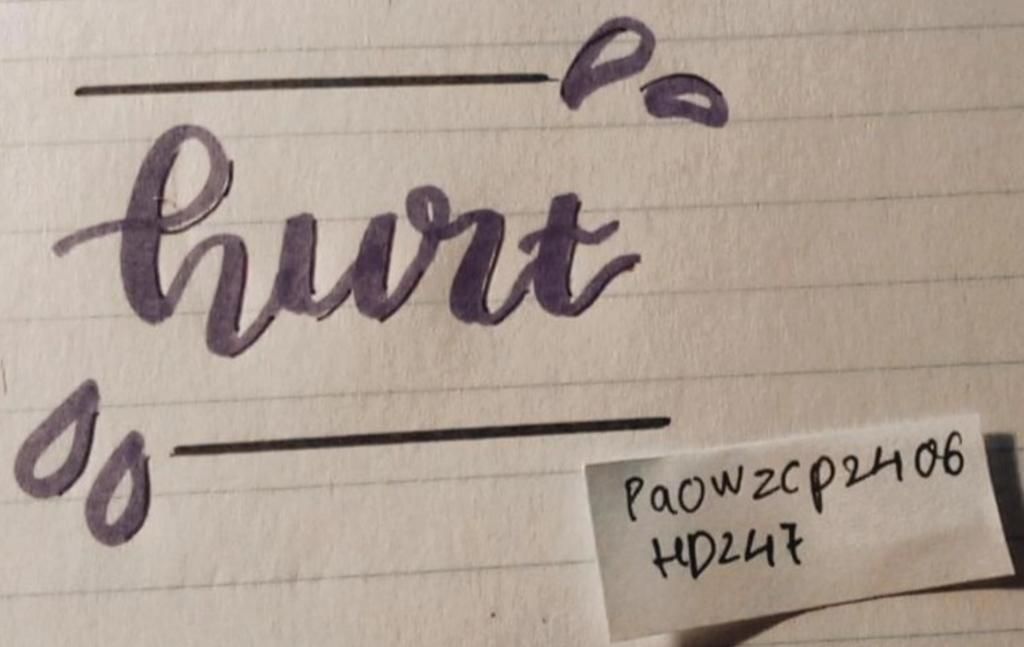 hurt
PaOWZCP2406
HD247